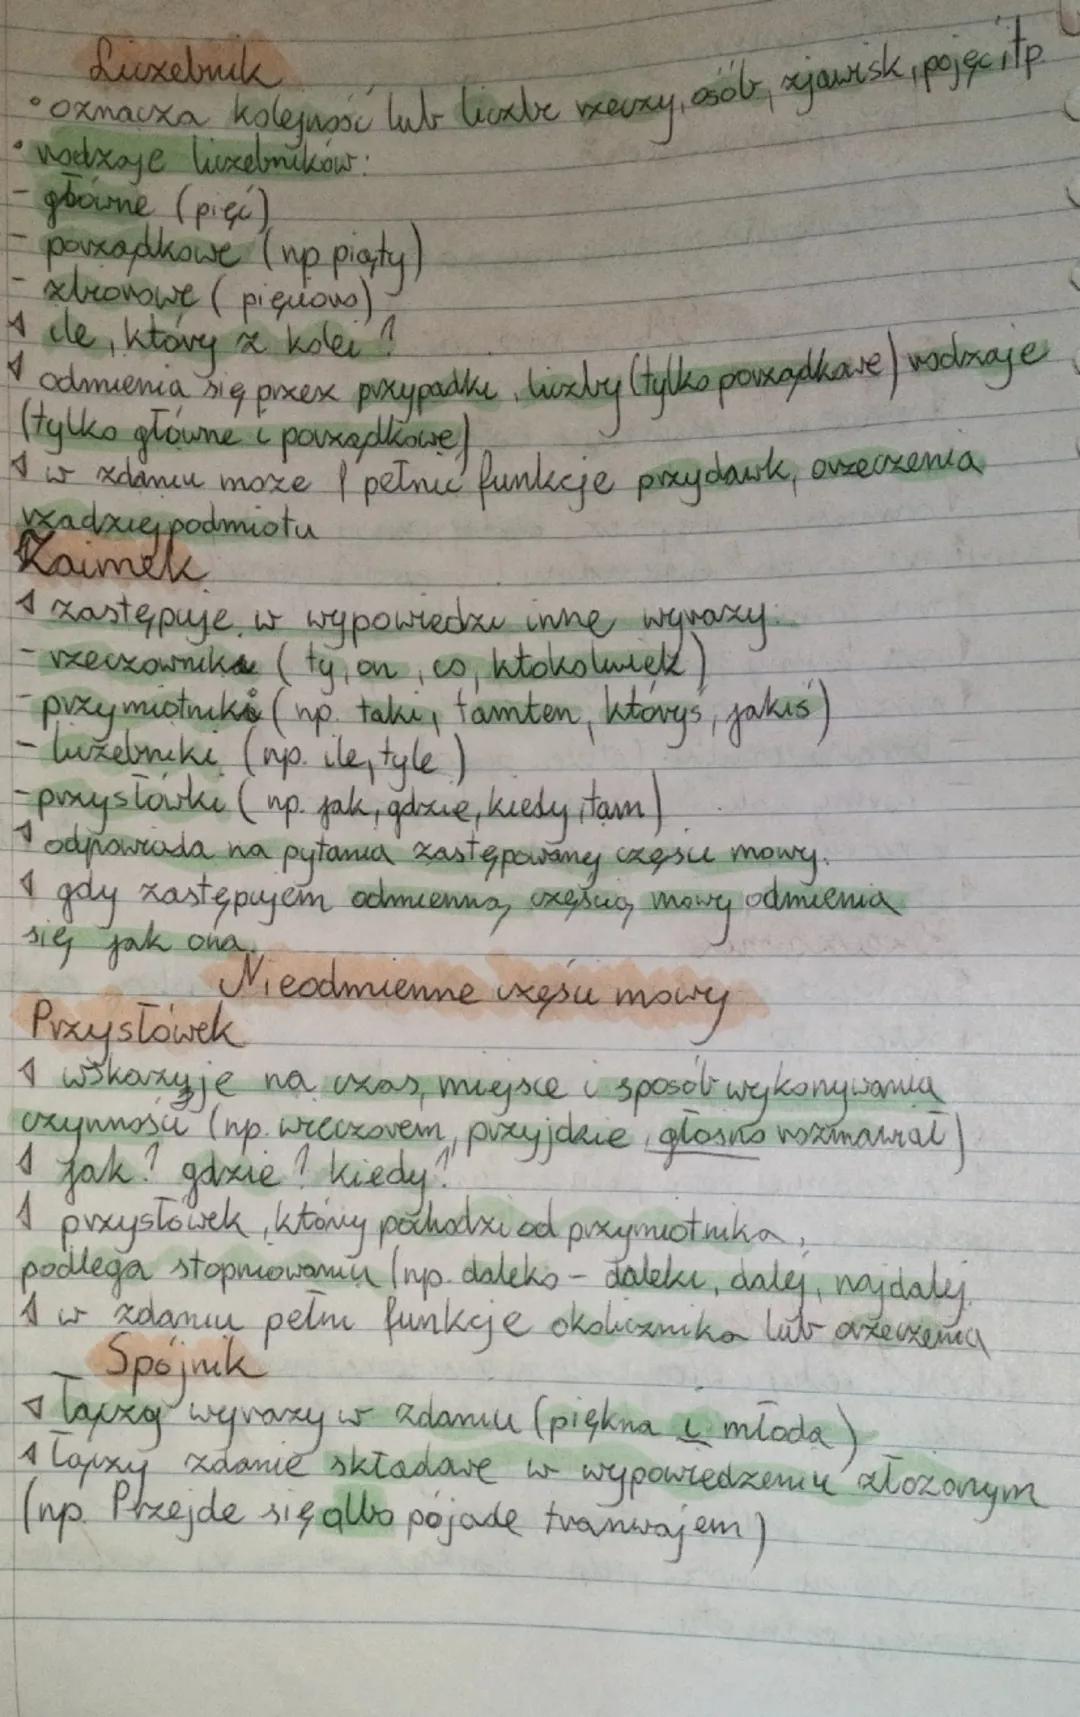 Liczebnik
• oznacza kolejność lub liczbę rzeczy, osób, zjawisk, pojęć itp.
• rodzaje liczebników:
- główne (pięć)
- porządkowe (np piąty)
- zbiorowe (pięcioro)
ile, który z kolei?
odmienia się przez przypadki, liczby (tylko porządkowe) rodzaje
(tylko główne i porządkowe)
w zdaniu może pełnić funkcję przydawk, orzeczenia
rzadziej podmiotu
Zaimek
zastępuje w wypowiedzi inne wyrazy:
- rzeczowniki (ty, on, co, ktokolwiek)
- przymiotniki (np. taki, tamten, któryś, jakiś)
- liczebniki (np. ile, tyle)
- przysłówki (np. jak, gdzie, kiedy, tam)
odpowiada na pytania zastępowanej części mowy.
gdy zastępujem odmienną częścią mowy odmienia
się jak ona.
Nieodmienne części mowy
Przysłówek
wskazuje na czas, miejsce i sposób wykonywania
czynności (np. wieczorem, przyjdzie, głośno rozmawiał)
jak? gdzie? kiedy?
przysłówek, który pochodzi od przymiotnika,
podlega stopniowaniu (np. daleko - daleki, dalej, najdalej
w zdaniu pełni funkcję okolicznika lub orzeczenia
Spójnik
łączą wyrazy w zdaniu (piękna i młoda)
łączy zdanie składowe w wypowiedzeniu złożonym
(np. Przejdę się albo pojadę tramwajem)